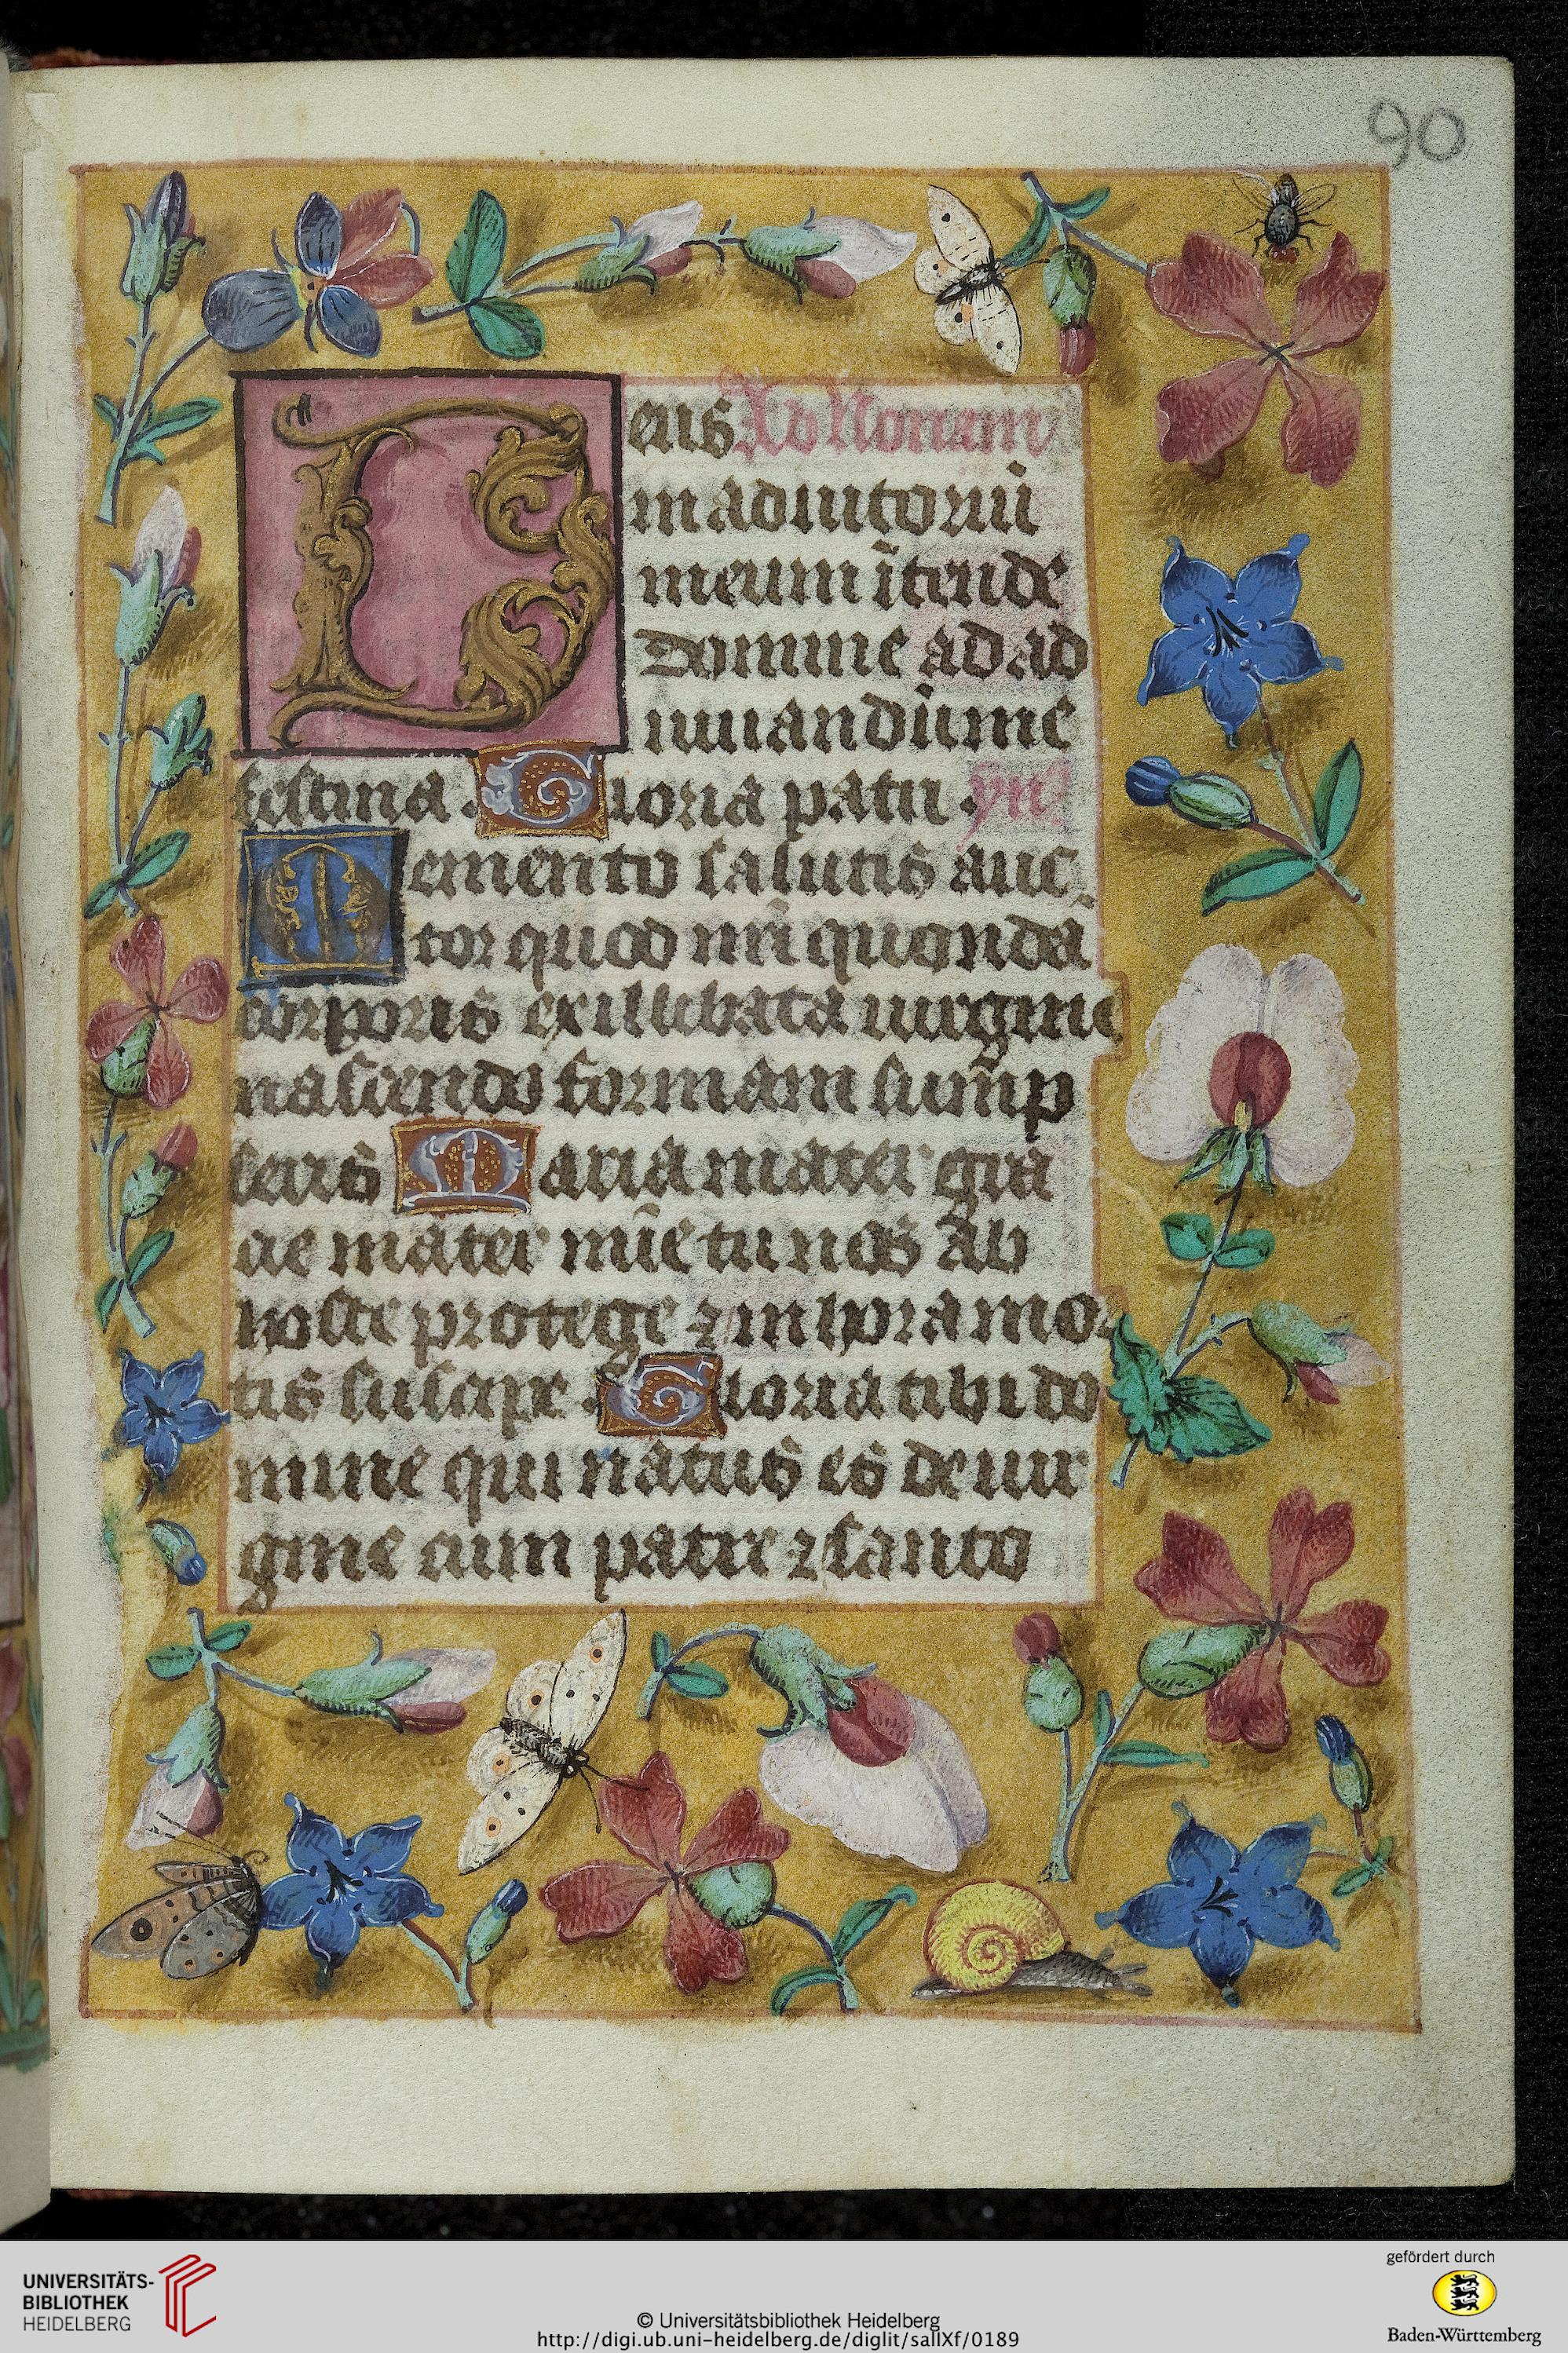 90
Deus Ad Nonam
in adiutoriū
meum ītende
Domine ad ad
iuuandū me
festina. Gloria patri. ym̄
Memento salutis auc
tor quod nr̄i quondā
corporis ex illibata uirgine
nascendo formam sump
seris Maria mater gr̄a
ae mater mīe tu nos ab
hoste protege ⁊ in hora mor
tis suscipe. Gloria tibi do
mine qui natus es de uir
gine cum patre ⁊ santo
UNIVERSITÄTS-
BIBLIOTHEK
HEIDELBERG
© Universitätsbibliothek Heidelberg
http://digi.ub.uni-heidelberg.de/diglit/salIXf/0189
gefördert durch
Baden-Württemberg